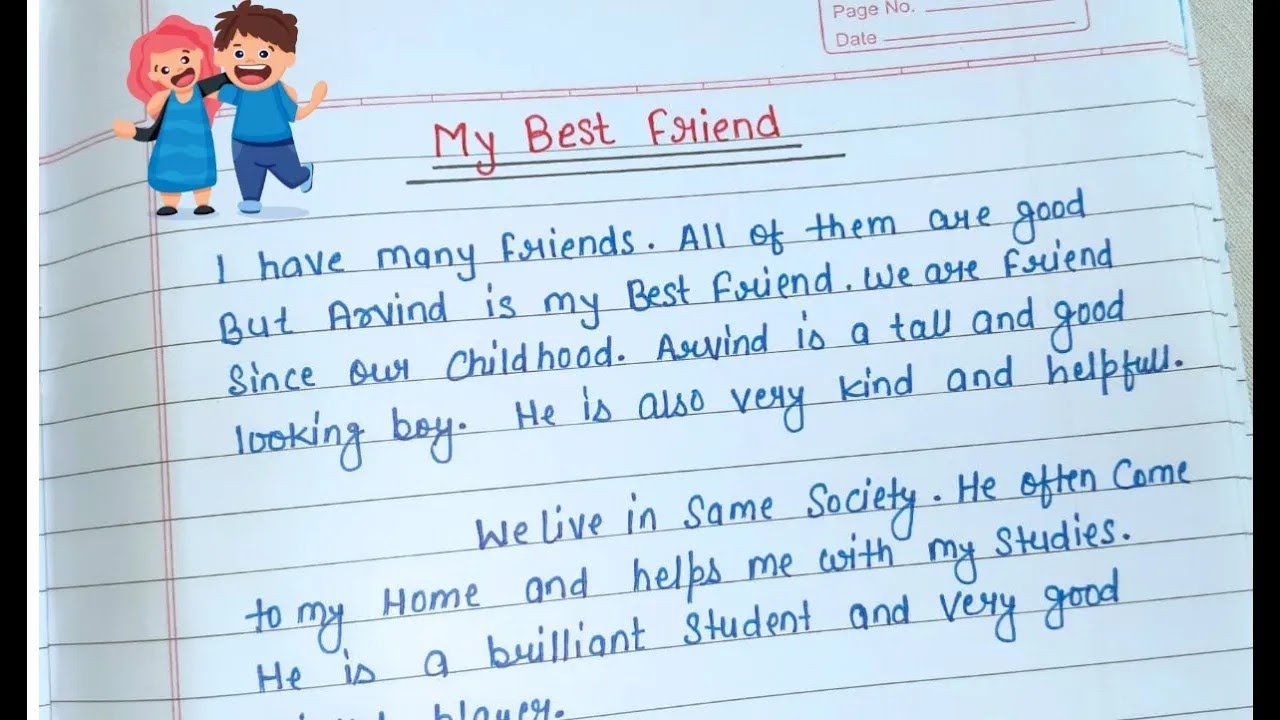 Page No.
Date
My Best Friend
I have many friends. All of them are good
But Arvind is my Best friend. We are friend
Since our Childhood. Arvind is a tall and good
looking boy. He is also very kind and helpfull.
We live in Same Society. He often Come
to my Home and helps me with my studies.
He is a brilliant Student and very good
player.